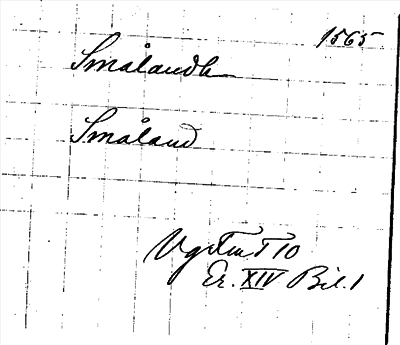 1565
Smålandh
Småland
Vg Fm T 10
Er. XIV Bil. 1